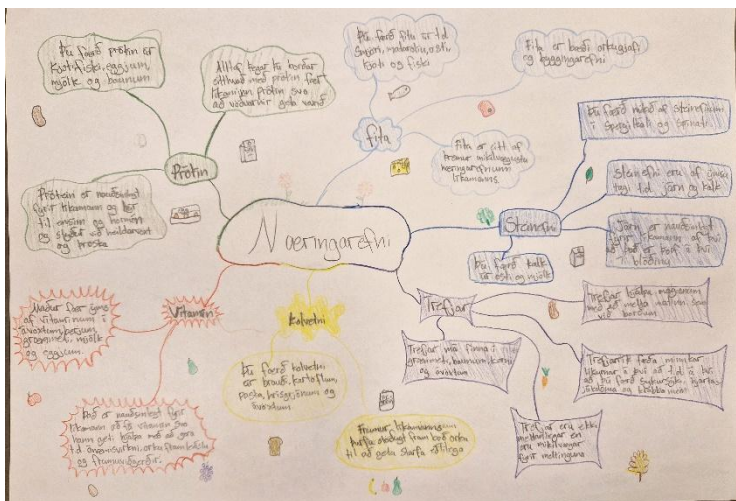 Næringarefni
Prótín
Þú færð prótín úr
kjöti, fiski, eggjum,
mjólk og baunum
Alltaf þegar þú borðar
eitthvað með prótín fær
líkaminn prótín svo
að vöðvarnir geta
Prótein er nauðsynlegt
fyrir líkamann og
til ensím og hormón
og styður við
og þroska
fita
Þú færð fitu úr t.d
smjöri, matarolíu, osti,
kjöti og fiski
Fita er bæði orkugjafi
og byggingarefni
Fita er eitt af
þremur mikilvægustu
næringarefnum
líkamanns.
Steinefni
Þú færð mikið af steinefnum
í spergilkáli og spínati.
Steinefni eru af ýmsu
tagi t.d. járn og kalk
Járn er nauðsynlegt
fyrir líkamann af því
að það er þörf á því
í blóðinu
Þú færð kalk
úr osti og mjólk
Trefjar
Trefjar hjálpa maganum
með að melta matinn sem
við borðum
Trefjarrík fæða minnkar
líkurnar á því að t.d á því
að þú færð sykursýki, hjarta-
sjúkdóma og krabbamein
Trefjar eru ekki
meltanlegar en
eru mikilvægar
fyrir meltinguna
Trefjar má finna í t.d
grænmeti, baunum, korni
og ávöxtum
Kolvetni
Þú færð kolvetni
úr brauði, kartöflum,
pasta, hrísgrjónum og
ávöxtum.
Frumur líkamannsins
þurfa stöðugt fram boð orku
til að geta starfa eðlilega
Vítamín
Maður fær ýmis
af vítamínum í
ávöxtum, berjum,
grænmeti, mjólk
og eggjum.
Það er nauðsynlegt fyrir
líkamann að fá vítamín svo
hann geti hjálpa með að gera
t.d ónæmisvirkni, orkuframleiðslu
og frumuviðgerðir.